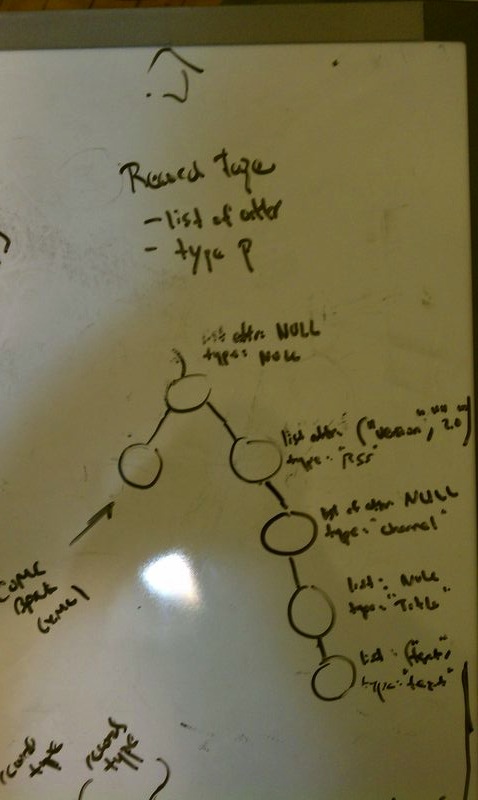 Record type
- list of attr
- type P
list attr: NULL
type: NULL
list attr: ("version", "2.0")
type: "RSS"
list of attr: NULL
type: "channel"
list: NULL
type: "Title"
list: ("text",
type: "text"
COME
BACK
(XML)
record
type
record
type